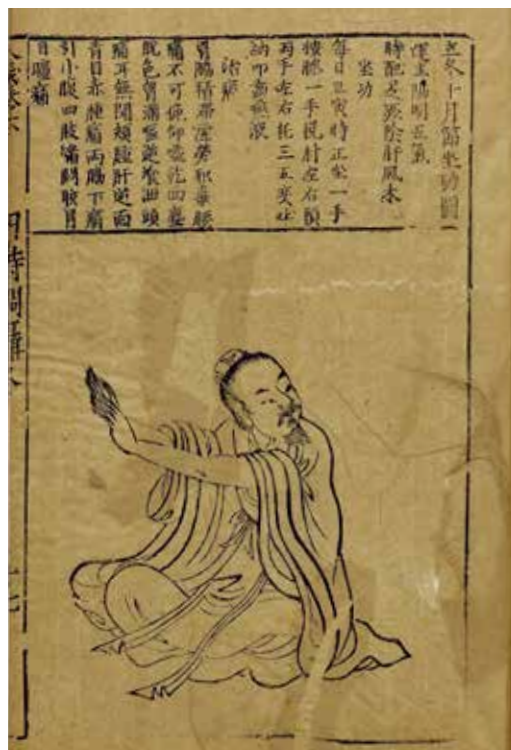 立冬十月節坐功圖
運主陽明五氣
時配足厥陰肝風木
坐功
每日丑寅時正坐一手
按膝一手挽肘左右顧
兩手左右托三五度吐
納叩齒嚥液
治病
胸脇積滯虛勞邪毒腰
痛不可俛仰嗌乾面塵
脫色胸滿嘔逆飧泄頭
痛耳無聞頰腫肝逆面
青目赤腫痛兩脇下痛
引小腹四肢滿悶眩冒
目瞳痛
四時調攝